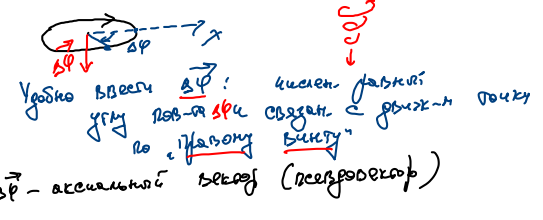 x
Δφ Δφ
Удобно ввести Δφ: числен. равный
углу пов-та Δφ и связан с движ-м точки
по "правому винту"
Δφ - аксиальный вектор (псевдовектор)